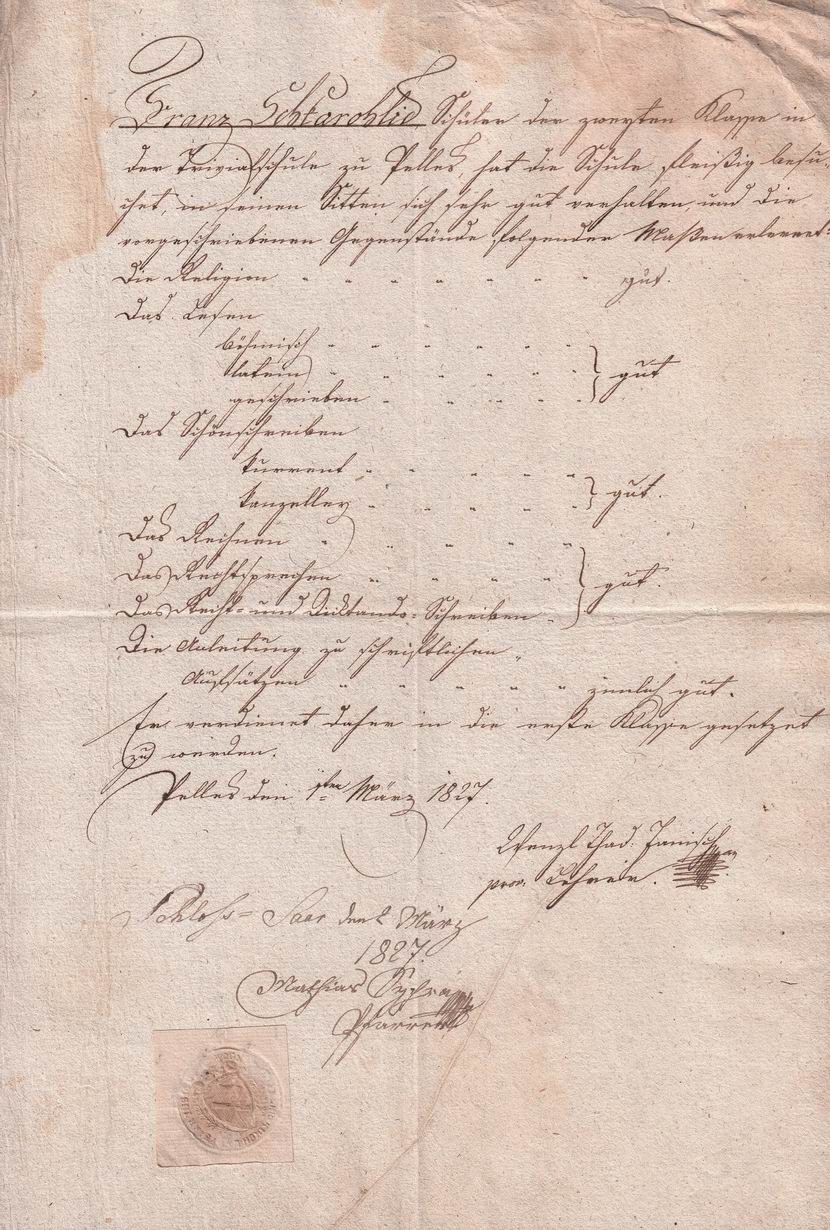 Franz Schkarohlid, Schüler der zweyten Klasse in
der Trivialschule zu Pelles, hat die Schule fleißig besu-
chet, in seinen Sitten sich sehr gut verhalten und die
vorgeschriebenen Gegenstände folgender Maßen erlernet:
Die Religion " " " " " " " gut.
Das Lesen
böhmisch " " " " "
latein " " " " " } gut
geschrieben " " " "
Das Schönschreiben
kurrent " " " " "
kanzelley " " " " " } gut.
Das Rechnen " " " "
Das Rechtsprechen " " " " } gut.
Das Recht= und Dicktando=Schreiben "
Die Anleitung zu schriftlichen "
Aufsätzen " " " " " " ziemlich gut.
Er verdienet daher in die erste Klasse gesetzet
zu werden.
Pelles den 1ten März 1827.
Wenzl Thad: Janisch
prov. Lehrer.
Schloss= Saar den 2 März
1827.
Mathias
Pfarrer